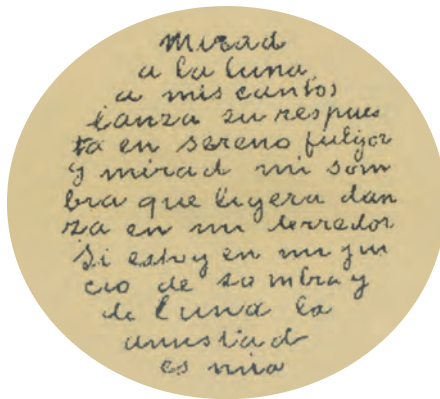 Mirad
a la luna
a mis cantos
lanza su respues
ta en sereno fulgor
y mirad mi som
bra que ligera dan
za en mi derredor
Si estoy en mi jui
cio de sombra y
de luna la
amistad
es mia